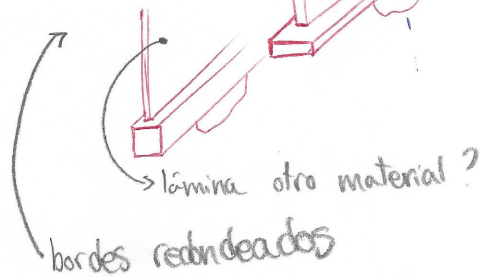 lámina otro material?
bordes redondeados